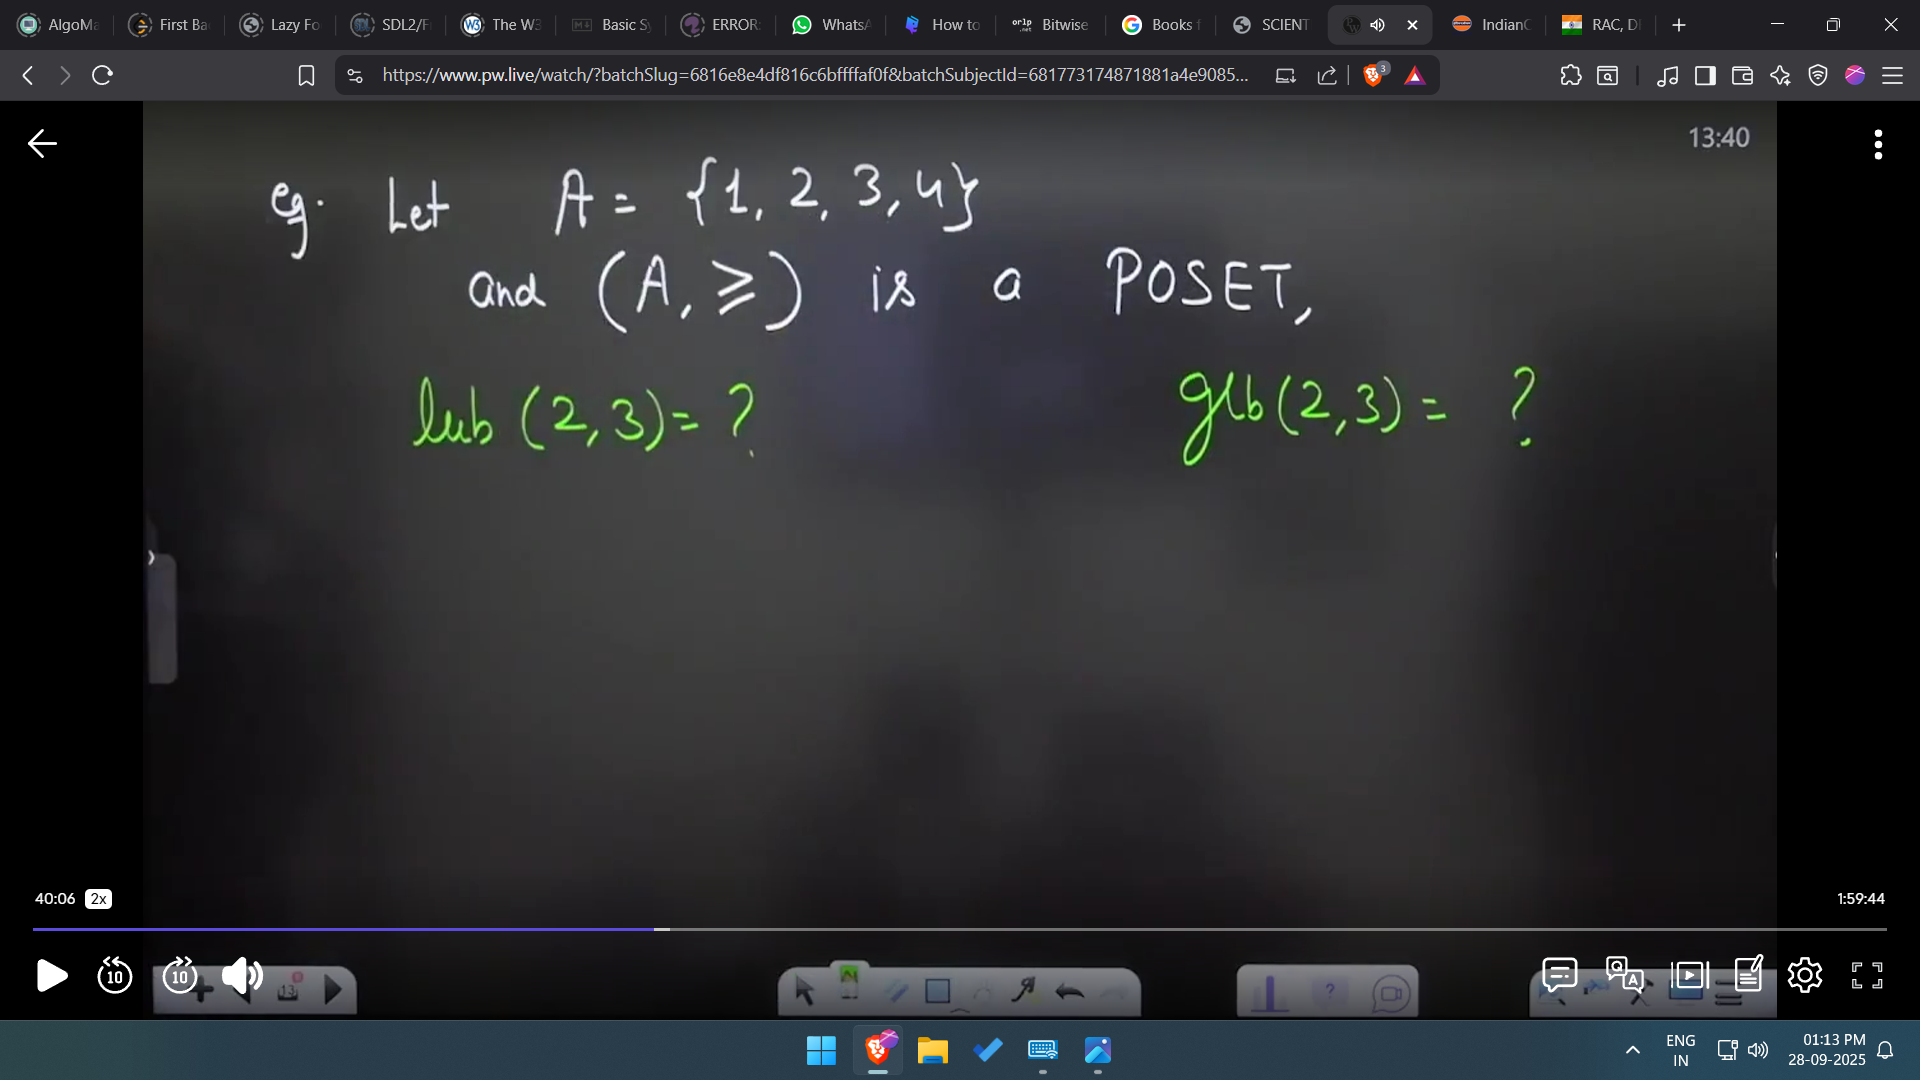 AlgoMa
First Ba
Lazy Fo
SDL2/F
The W3
Basic Sy
ERROR:
WhatsA
How to
Bitwise
Books f
SCIENT
IndianO
RAC, D
https://www.pw.live/watch/?batchSlug=6816e8e4df816c6bffffaf0f&batchSubjectId=681773174871881a4e9085...
3
13:40
eg. Let A = {1, 2, 3, 4}
and (A, ⩾) is a POSET,
lub (2,3) = ? glb (2,3) = ?
40:06 2x 1:59:44
10 10
13
ENG
IN
01:13 PM
28-09-2025